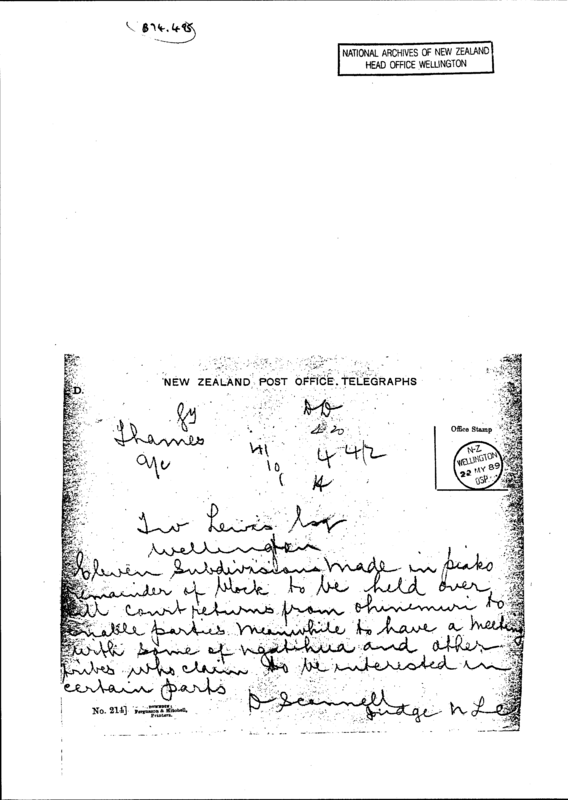 874.495
NATIONAL ARCHIVES OF NEW ZEALAND
HEAD OFFICE WELLINGTON
NEW ZEALAND POST OFFICE. TELEGRAPHS
D.
Thames
41
10
4 42
Office Stamp
N-Z
WELLINGTON
22 MY 89
Lewis Esq
Wellington
Eleven Subdivisions made in piako
remainder of block to be held over
till court returns from ohinemuri to
enable parties meanwhile to have a meeting
with some of ngatihua and other
tribes who claim to be interested in
certain parts
D Scannell
Judge N L C
No. 214]
Fergusson & Mitchell,
Printers.